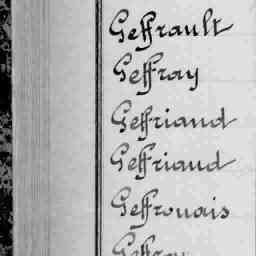 Geffrault
Geffray
Geffriaud
Geffriaud
Geffrouais
Geffroy